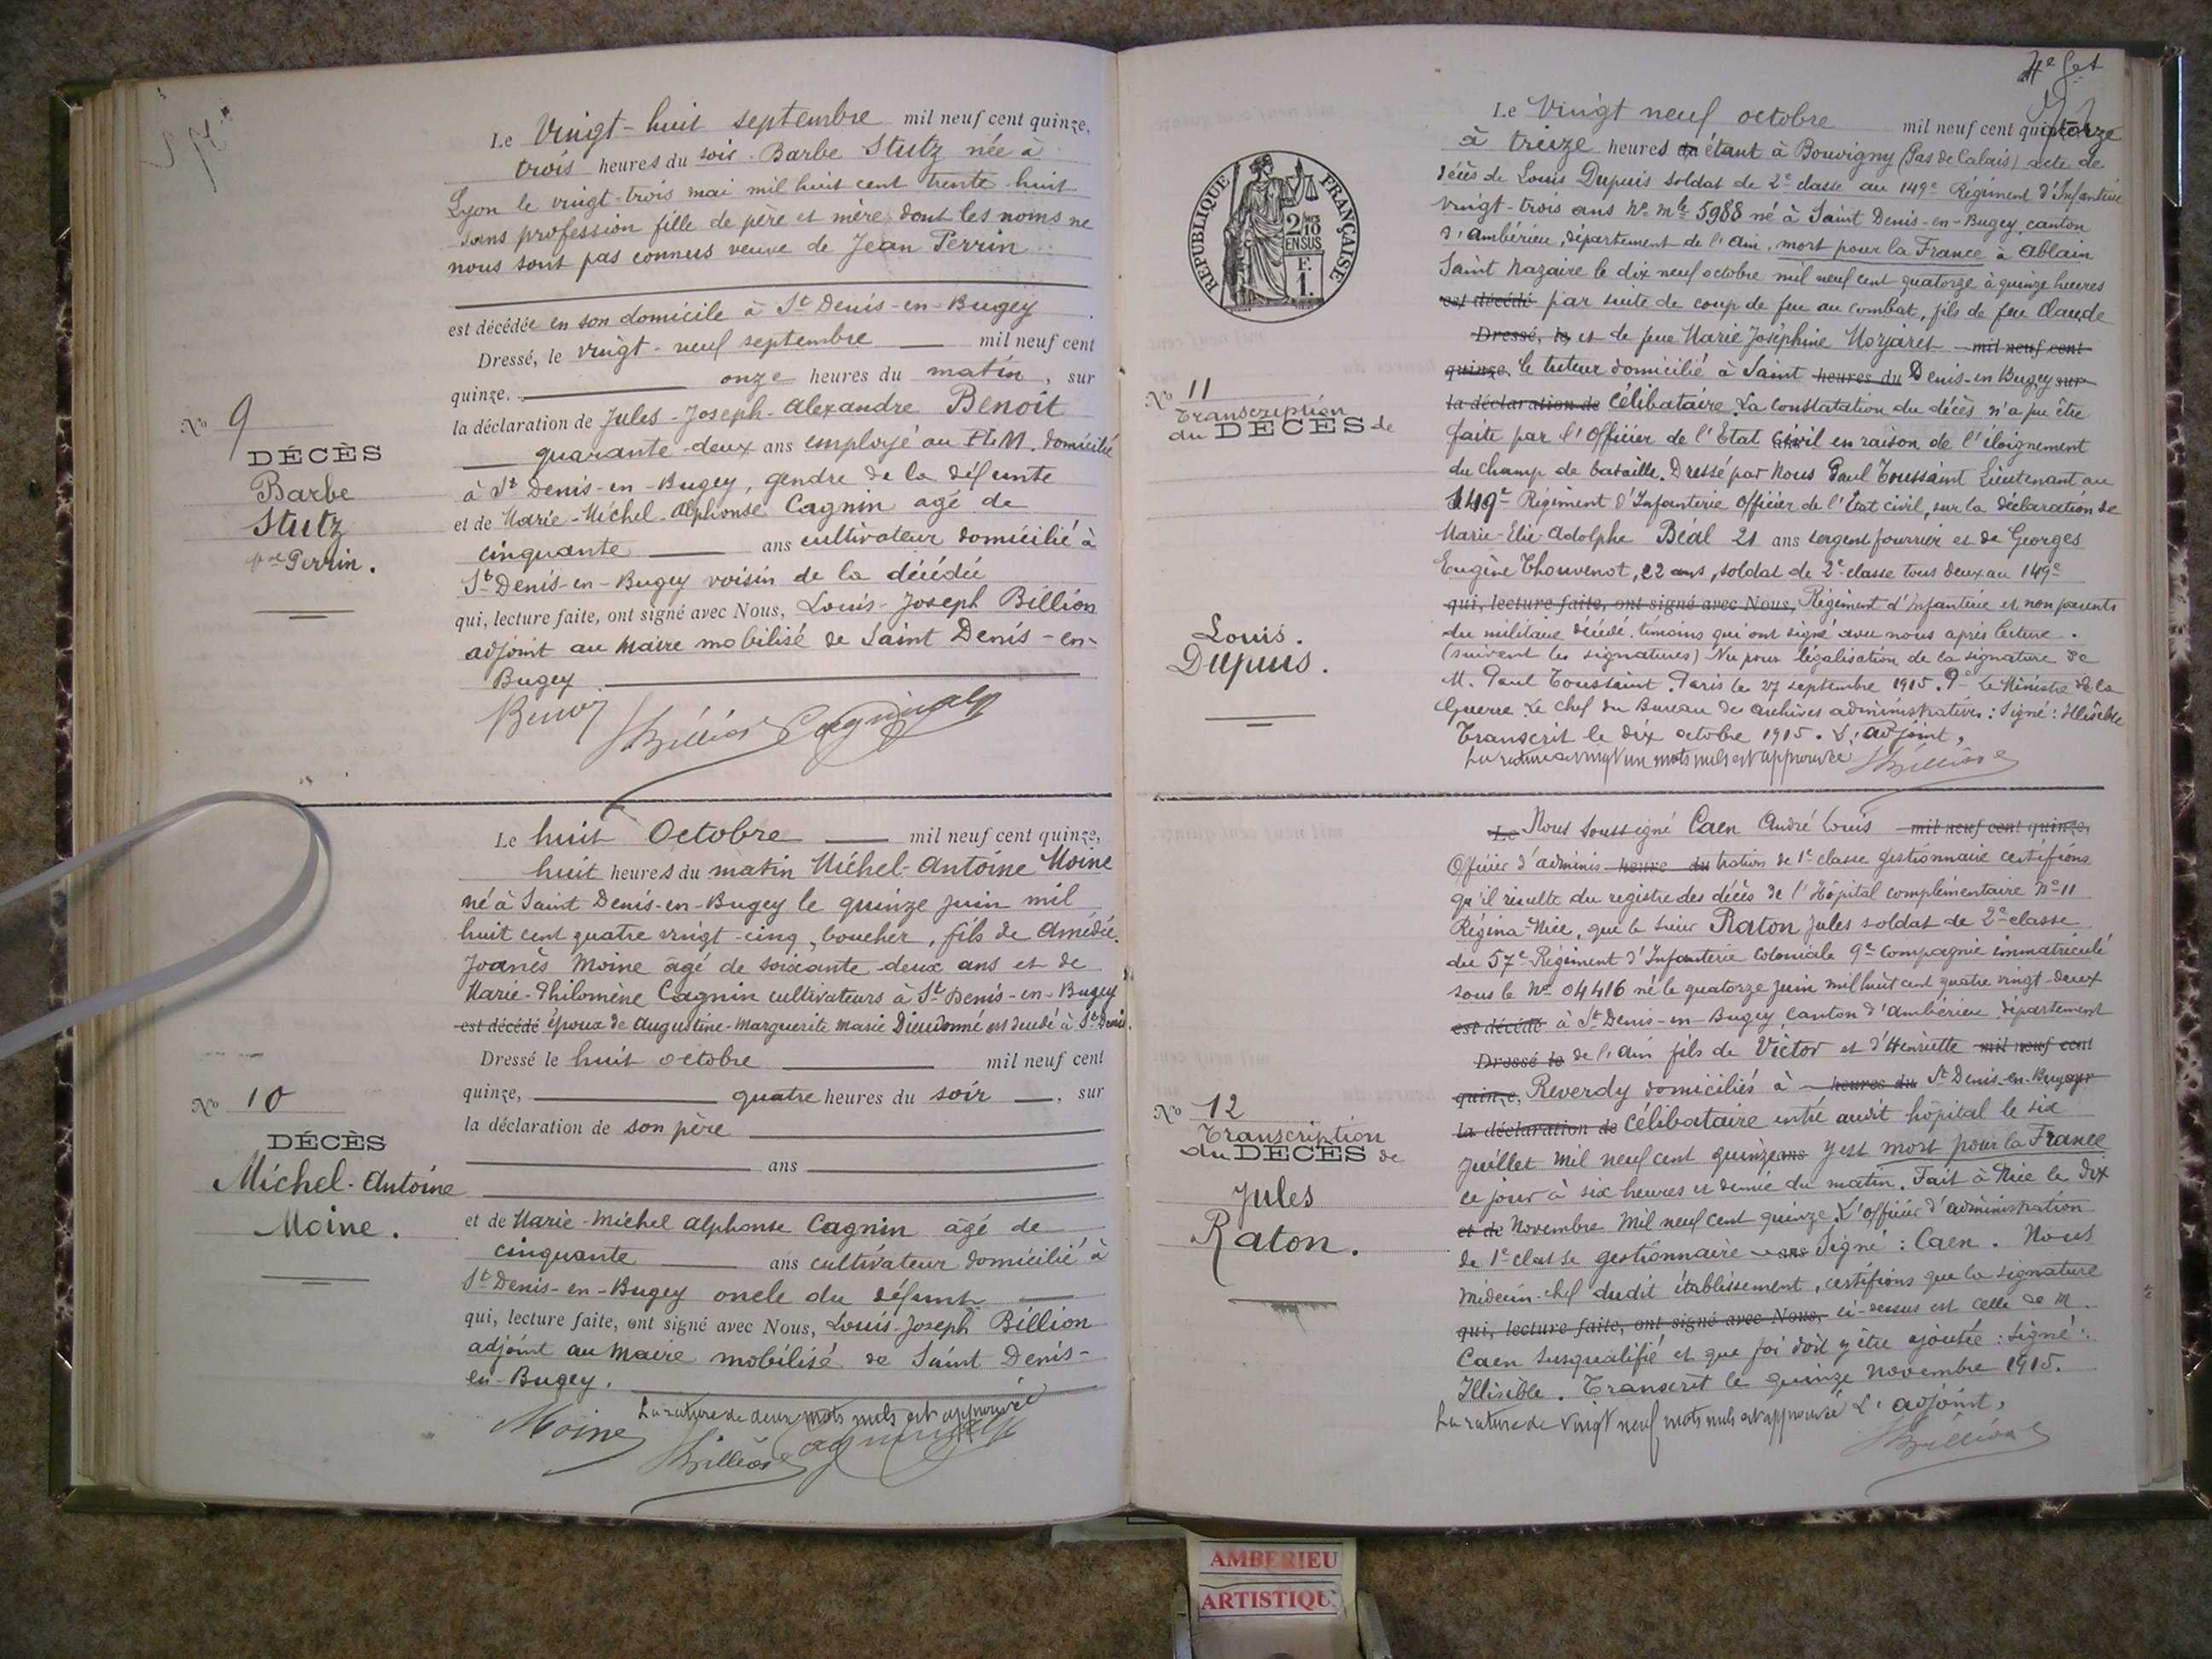 Le Vingt-huit septembre mil neuf cent quinze,
trois heures du soir. Barbe Stutz née à
Lyon le vingt-trois mai mil huit cent trente huit
sans profession fille de père et mère dont les noms ne
nous sont pas connus veuve de Jean Perrin
est décédée en son domicile à St Denis-en-Bugey
Dressé, le vingt-neuf septembre mil neuf cent
quinze. onze heures du matin, sur
la déclaration de Jules-Joseph-Alexandre Benoit
quarante-deux ans employé au P.L.M. domicilié
à St Denis-en-Bugey, gendre de la défunte
et de Marie-Michel-Alphonse Cagnin agé de
cinquante ans cultivateur domicilié à
St Denis-en-Bugey voisin de la décédée
qui, lecture faite, ont signé avec Nous, Louis-Joseph Billion
adjoint au Maire mobilisé de Saint Denis-en-
Bugey
Benoit Billion Cagnin alp
No 9
DÉCÈS
Barbe
Stutz
vve Perrin.
Le huit Octobre mil neuf cent quinze,
huit heures du matin Michel-Antoine Moine
né à Saint Denis-en-Bugey le quinze juin mil
huit cent quatre vingt-cinq, boucher, fils de Amédée
Joanès Moine âgé de soixante-deux ans et de
Marie-Philomène Cagnin cultivateurs à St Denis-en-Bugey
est décédé époux de Augustine-Marguerite Marie Dieudonné est décédé à St Denis.
Dressé le huit octobre mil neuf cent
quinze, quatre heures du soir, sur
la déclaration de son père
ans
et de Marie-Michel Alphonse Cagnin âgé de
cinquante ans cultivateur domicilié à
St Denis-en-Bugey oncle du défunt
qui, lecture faite, ont signé avec Nous, Louis-Joseph Billion
adjoint au Maire mobilisé de Saint Denis-
en-Bugey.
La rature de deux mots nuls est approuvée
Moine Billion Cagnin alp
No 10
DÉCÈS
Michel-Antoine
Moine.
Le Vingt neuf octobre mil neuf cent quatorze
à treize heures du étant à Bouvigny (Pas de Calais) acte de
décès de Louis Dupuis soldat de 2e classe au 149e Régiment d'Infanterie
vingt-trois ans No mle 5988 né à Saint Denis-en-Bugey, canton
d'Ambérieu, département de l'Ain, mort pour la France à Ablain
Saint Nazaire le dix neuf octobre mil neuf cent quatorze à quinze heures
est décédé par suite de coup de feu au combat, fils de feu Claude
Dressé, le, et de feue Marie Joséphine Morjaret mil neuf cent
quinze. le tuteur domicilié à Saint heures du Denis-en Bugey sur
la déclaration de Célibataire. La constatation du décès n'a pu être
faite par l'Officier de l'Etat civil en raison de l'éloignement
du champ de bataille. Dressé par Nous Paul Toussaint Lieutenant au
149e Régiment d'Infanterie Officier de l'Etat civil, sur la déclaration de
Marie-Elie-Adolphe Béal 21 ans sergent fourrier et de Georges
Eugène Thouvenot, 22 ans, soldat de 2e classe tous deux au 149e
qui, lecture faite, ont signé avec Nous, Régiment d'Infanterie et non parents
du militaire décédé, témoins qui ont signé avec nous après lecture.
(suivent les signatures) Vu pour légalisation de la signature de
M. Paul Toussaint. Paris le 27 septembre 1915. Pr Le Ministre de la
Guerre. Le chef du Bureau des archives administratives: Signé: Illisible
Transcrit le dix octobre 1915. L'adjoint,
La rature de vingt un mots nuls est approuvée Billion
REPUBLIQUE FRANÇAISE
2/10
EN SUS
F.
1.
No 11
Transcription
du DÉCÈS de
Louis.
Dupuis.
Le Nous Soussigné Caen André Louis mil neuf cent quinze,
Officier d'adminis heure du tration de 1e classe gestionnaire certifions
qu'il résulte du registre des décès de l'Hôpital complémentaire No 11
Régina-Nice, que le sieur Raton Jules soldat de 2e classe
du 57e Régiment d'Infanterie Coloniale 9e Compagnie immatriculé
sous le No 04416 né le quatorze juin mil huit cent quatre vingt-deux
est décédé à St Denis-en-Bugey, canton d'Ambérieu, département
Dressé le de l'Ain fils de Victor et d'Henriette mil neuf cent
quinze, Reverdy domiciliés à heures du St Denis-en-Bugey sur
la déclaration de Célibataire entré audit hôpital le six
Juillet mil neuf cent quinze ans y est mort pour la France
ce jour à six heures et demie du matin. Fait à Nice le dix
et de Novembre mil neuf cent quinze. L'officier d'administration
de 1e classe gestionnaire ans Signé: Caen. Nous
Médecin-chef dudit établissement, certifions que la signature
qui, lecture faite, ont signé avec Nous, ci-dessus est celle de M.
Caen susqualifié et que foi doit y être ajoutée: Signé:
Illisible. Transcrit le quinze Novembre 1915.
La rature de vingt neuf mots nuls est approuvée L'adjoint,
Billion
No 12
Transcription
du DÉCÈS de
Jules
Raton.
AMBERIEU
ARTISTIQU